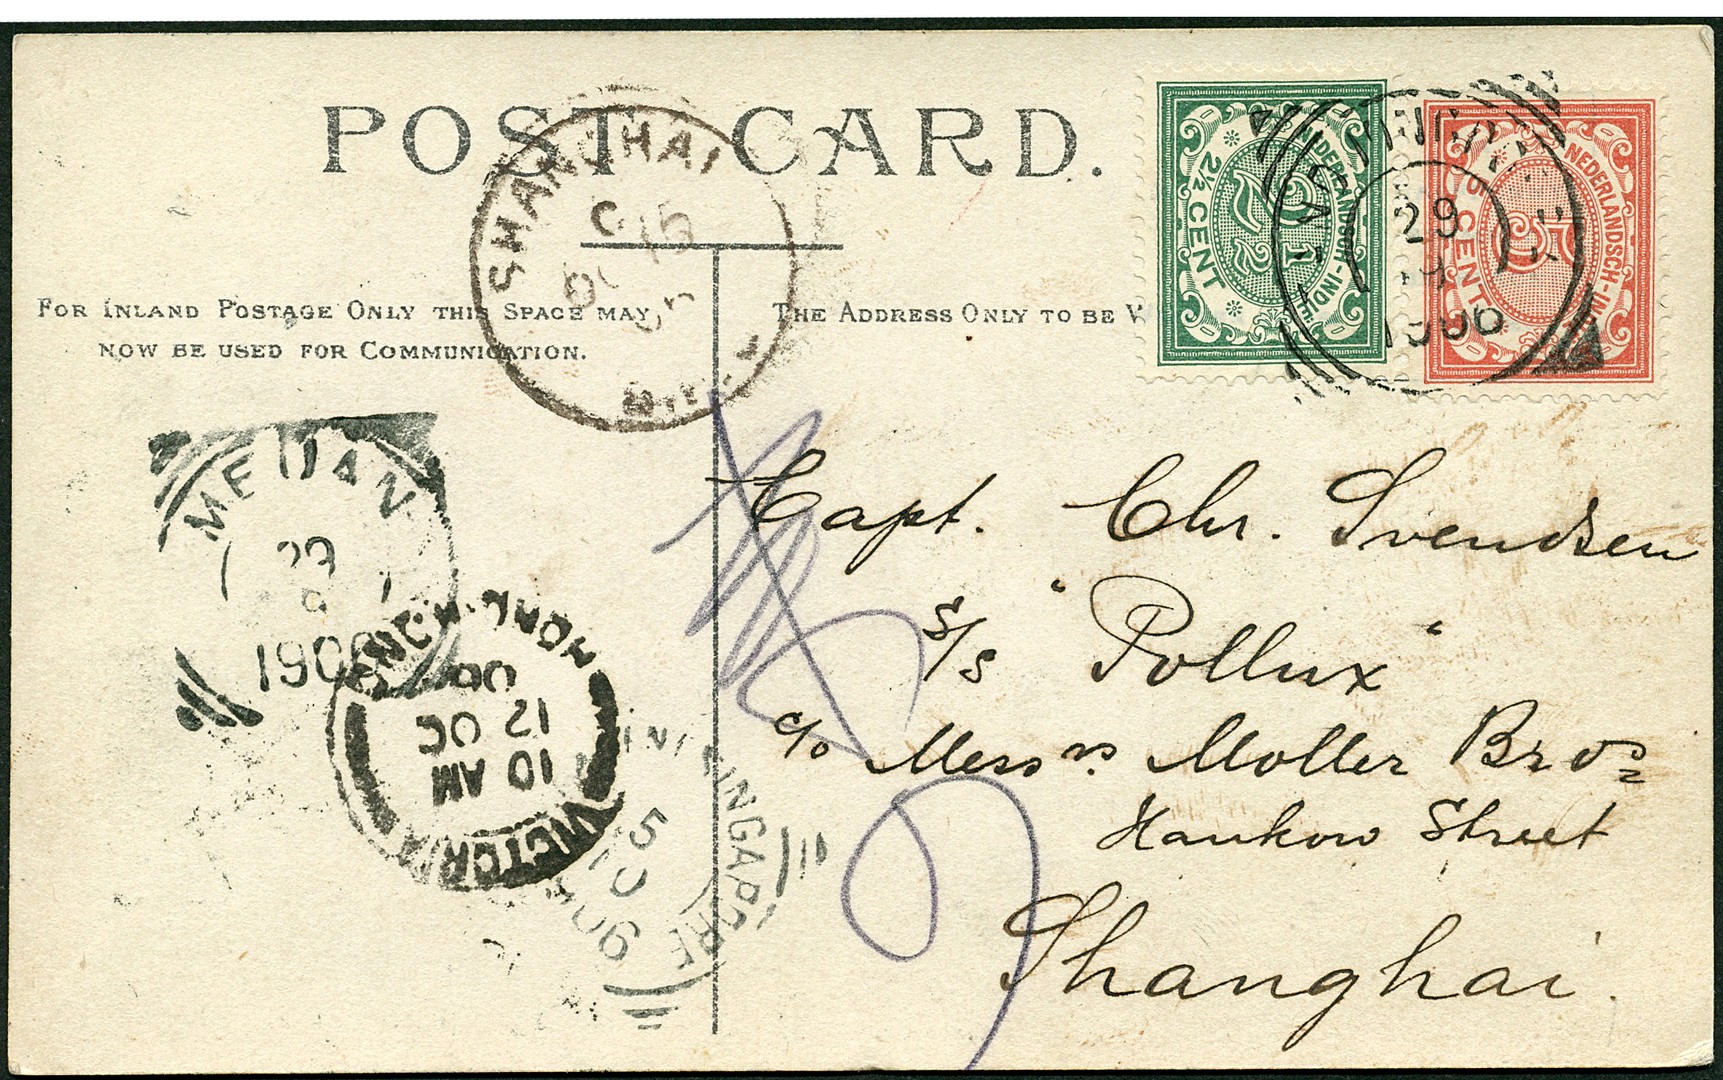 POST CARD.
FOR INLAND POSTAGE ONLY THIS SPACE MAY
NOW BE USED FOR COMMUNICATION.
THE ADDRESS ONLY TO BE
NEDERLANDSCH-INDIË
2½ CENT
2½
NEDERLANDSCH-INDIË
5 CENT
5
29
1906
SHANGHAI
15
MEDAN
29
1906
HONG KONG
10 AM
12 OC
06
VICTORIA
SINGAPORE
5 OC
1906
Capt. Chr. Svendsen
S/S "Pollux"
c/o Messrs. Moller Bros
Hankow Street
Shanghai.